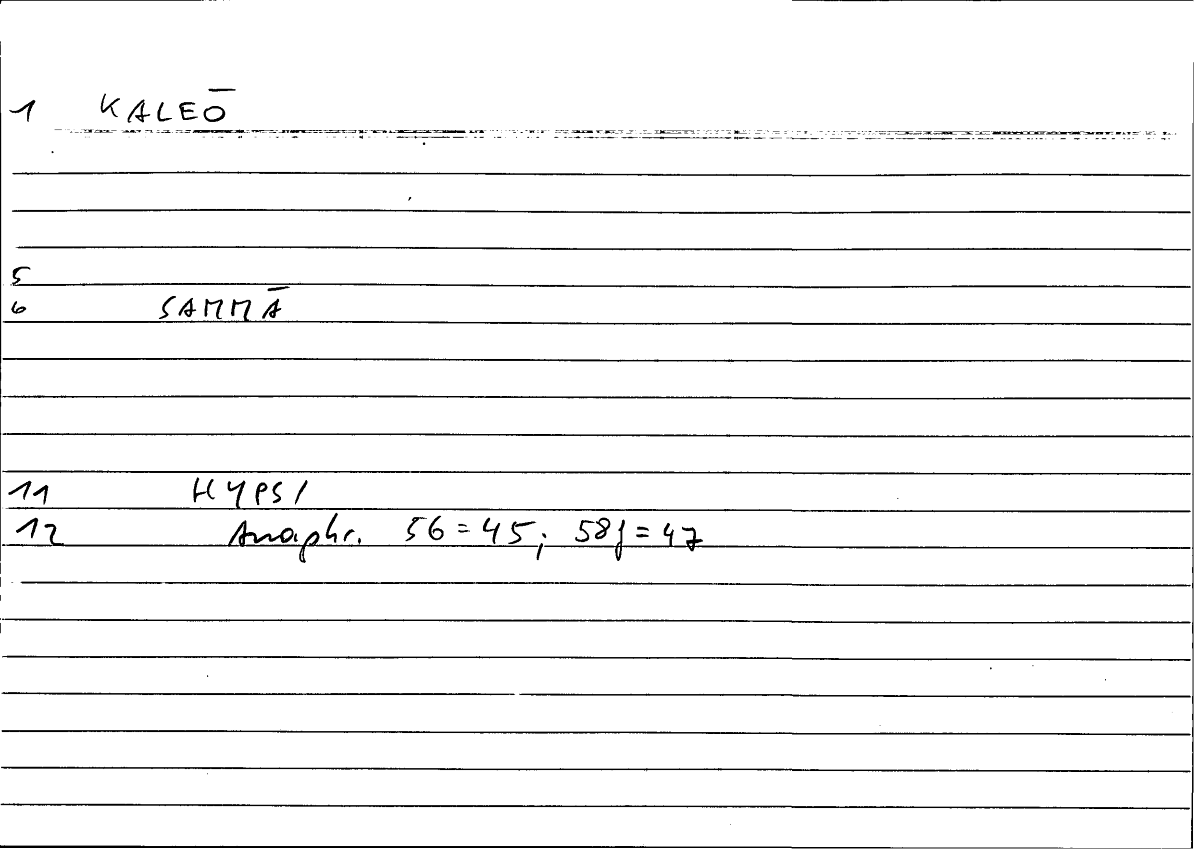 1 KALEŌ
5
6 SAMMĀ
11 HYPSI
12 Anaphr. 56 = 45; 58f = 47